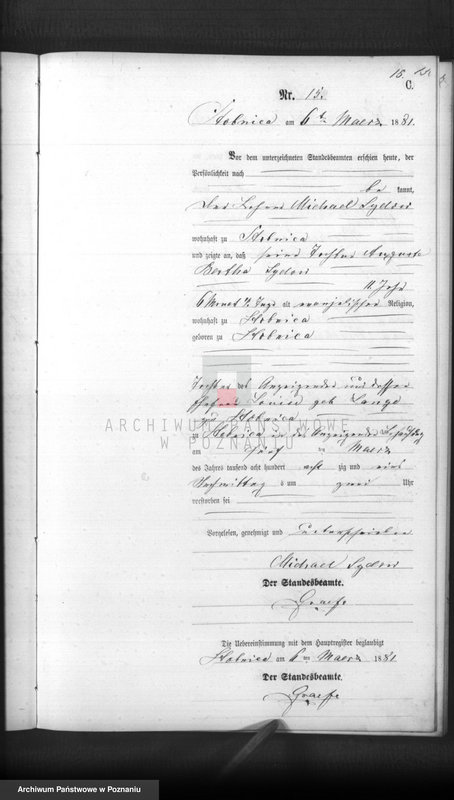 15.
C.
Nr. 15.
Stobnica am 6 ten Maerz 1881.
Vor dem unterzeichneten Standesbeamten erschien heute, der
Persönlichkeit nach
be kannt,
Michael Sydow
wohnhaft zu Stobnica
und zeigte an, daß seine Tochter Auguste
Bertha Sydow
11 Jahr
6 Monat Tage alt evangelischer Religion,
wohnhaft zu Stobnica
geboren zu Stobnica
Tochter des Anzeigenden und dessen
Ehefrau Louise geb. Lange
Stobnica
ARCHIWUM PAŃSTWOWE
W POZNANIU
zu Stobnica in des Anzeigenden
am ten Maerz
des Jahres tausend acht hundert acht zig und eins
Nachmittag s um zwei Uhr
verstorben sei
Vorgelesen, genehmigt und unterschrieben
Michael Sydow
Der Standesbeamte.
Graefe
Die Uebereinstimmung mit dem Hauptregister beglaubigt
Stobnica am 6 ten Maerz 1881
Der Standesbeamte.
Graefe
Archiwum Państwowe w Poznaniu